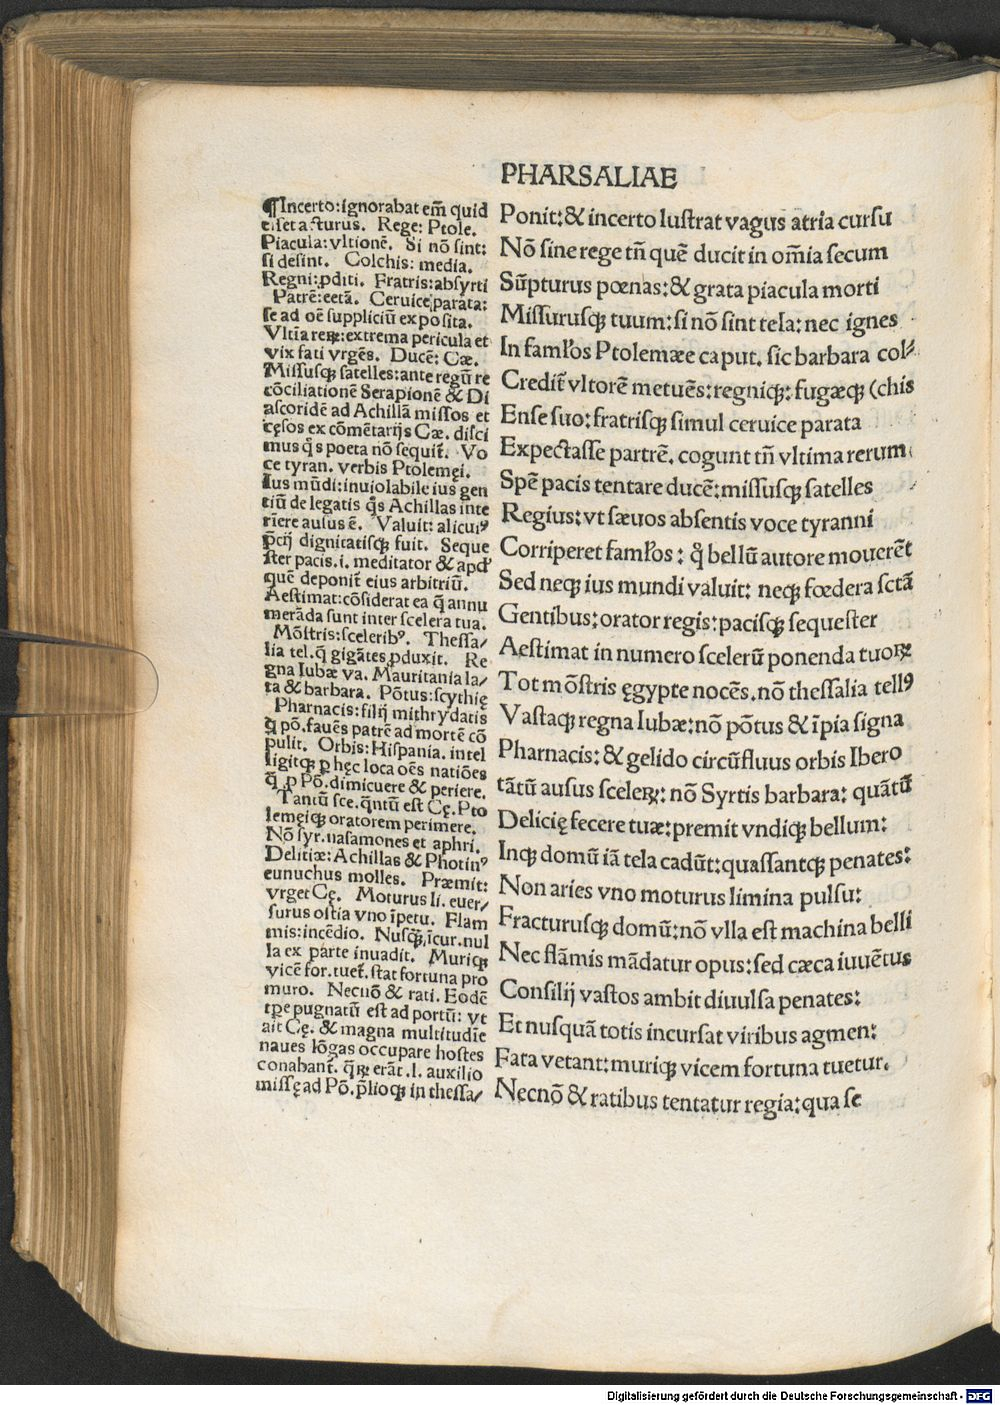 PHARSALIAE
¶Incerto:ignorabat em̃ quid
eſſet acturus. Rege: Ptole.
Piacula:vltionẽ. Si nõ ſint:
ſi deſint. Colchis: media.
Regni:ꝓditi. Fratris:abſyrti
Patrẽ:eetã. Ceruice parata:
ſe ad oẽ ſuppliciũ expoſita.
Vltia reꝝ:extrema pericula et
vix fati vrgẽs. Ducẽ: Cæ.
Miſſuſqꝫ ſatelles:ante regũ re
cõciliationẽ Serapionẽ & Di
aſcoridẽ ad Achillã miſſos et
cęſos ex cõmẽtarijs Cæ. diſci
mus q̊s poeta nõ ſequit̃. Vo
ce tyran. verbis Ptolemęi.
Ius mũdi:inuiolabile ius gen
tiũ de legatis q̊s Achillas inte
rĩere auſus ẽ. Valuit: alicuiꝰ
p̃cij dignitatiſqꝫ fuit. Seque
ſter pacis.i. meditator & apd'
quẽ deponit̃ eius arbitriũ.
Aeſtimat:cõſiderat ea q̃ annu
merãda ſunt inter ſcelera tua.
Mõſtris:ſceleribꝰ. Theſſa⸗
lia tel.q̃ gigãtes ꝓduxit. Re
gna Iubæ va. Mauritania la⸗
ta & barbara. Põtus:ſcythię
Pharnacis:filij mithrydatis
q̃ põ.fauẽs patrẽ ad mortẽ cõ
pulit. Orbis:Hiſpania. intel
ligitqꝫ ꝑ hęc loca oẽs natiões
q̃ ꝓ Põ.dimicuere & periere.
Tantũ ſce.q̃ntũ eſt Cę. Pto
lemęiqꝫ oratorem perimere.
Nõ ſyr.naſamones et aphri.
Delitiæ: Achillas & Photinꝰ
eunuchus molles. Præmit:
vrget Cę. Moturus li. euer⸗
ſurus oſtia vno ĩpetu. Flam
mis:incẽdio. Nuſq̃ ĩcur.nul
la ex parte inuadit. Muriqꝫ
vicẽ for.tuet̃. ſtat fortuna pro
muro. Necnõ & rati. Eodẽ
tp̃e pugnatũ eſt ad portũ: vt
ait Cę. & magna multitudĩe
naues lõgas occupare hoſtes
conabant̃. q̃ꝝ erãt .l. auxilio
miſſę ad Põ.p̃lioqꝫ in theſſa⸗
Ponit:& incerto luſtrat vagus atria curſu
Nõ ſine rege tñ quẽ ducit in om̃ia ſecum
Sũpturus pœnas:& grata piacula morti
Miſſuruſqꝫ tuum:ſi nõ ſint tela: nec ignes
In faml̃os Ptolemæe caput. ſic barbara col⸗
Credit̃ vltorẽ metuẽs:regniqꝫ: fugæqꝫ (chis
Enſe ſuo: fratriſqꝫ ſimul ceruice parata
Expectaſſe partrẽ. cogunt tñ vltima rerum
Spẽ pacis tentare ducẽ:miſſuſqꝫ ſatelles
Regius: vt ſæuos abſentis voce tyranni
Corriperet faml̃os: q̊ bellũ autore mouerẽt
Sed neqꝫ ius mundi valuit: neqꝫ fœdera ſctã
Gentibus: orator regis:paciſqꝫ ſequeſter
Aeſtimat in numero ſcelerũ ponenda tuoꝝ
Tot mõſtris ęgypte nocẽs.nõ theſſalia tellꝰ
Vaſtaqꝫ regna Iubæ:nõ põtus & ĩpia ſigna
Pharnacis:& gelido circũfluus orbis Ibero
tãtũ auſus ſceleꝝ: nõ Syrtis barbara: quãtũ
Delicię fecere tuæ:premit vndiqꝫ bellum:
Inqꝫ domũ iã tela cadũt:quaſſantqꝫ penates:
Non aries vno moturus limina pulſu:
Fracturuſqꝫ domũ:nõ vlla eſt machina belli
Nec flãmis mãdatur opus:ſed cæca iuuẽtus
Conſilij vaſtos ambit diuulſa penates:
Et nuſquã totis incurſat viribus agmen:
Fata vetant:muriqꝫ vicem fortuna tuetur.
Necnõ & ratibus tentatur regia:qua ſe
Digitalisierung gefördert durch die Deutsche Forschungsgemeinschaft - DFG